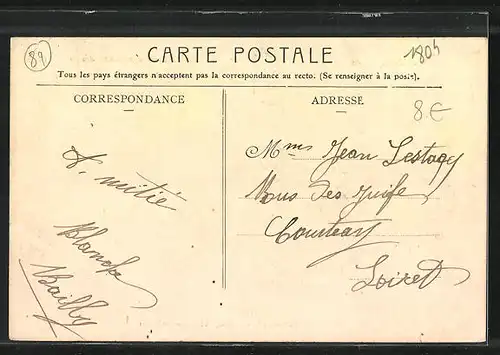 89
1804
CARTE POSTALE
Tous les pays étrangers n'acceptent pas la correspondance au recto. (Se renseigner à la poste).
CORRESPONDANCE
ADRESSE
8€
Mme Jean Lestage
Rue des Juifs
Courtenay
Loiret
Amitié
Blanche
Bailly